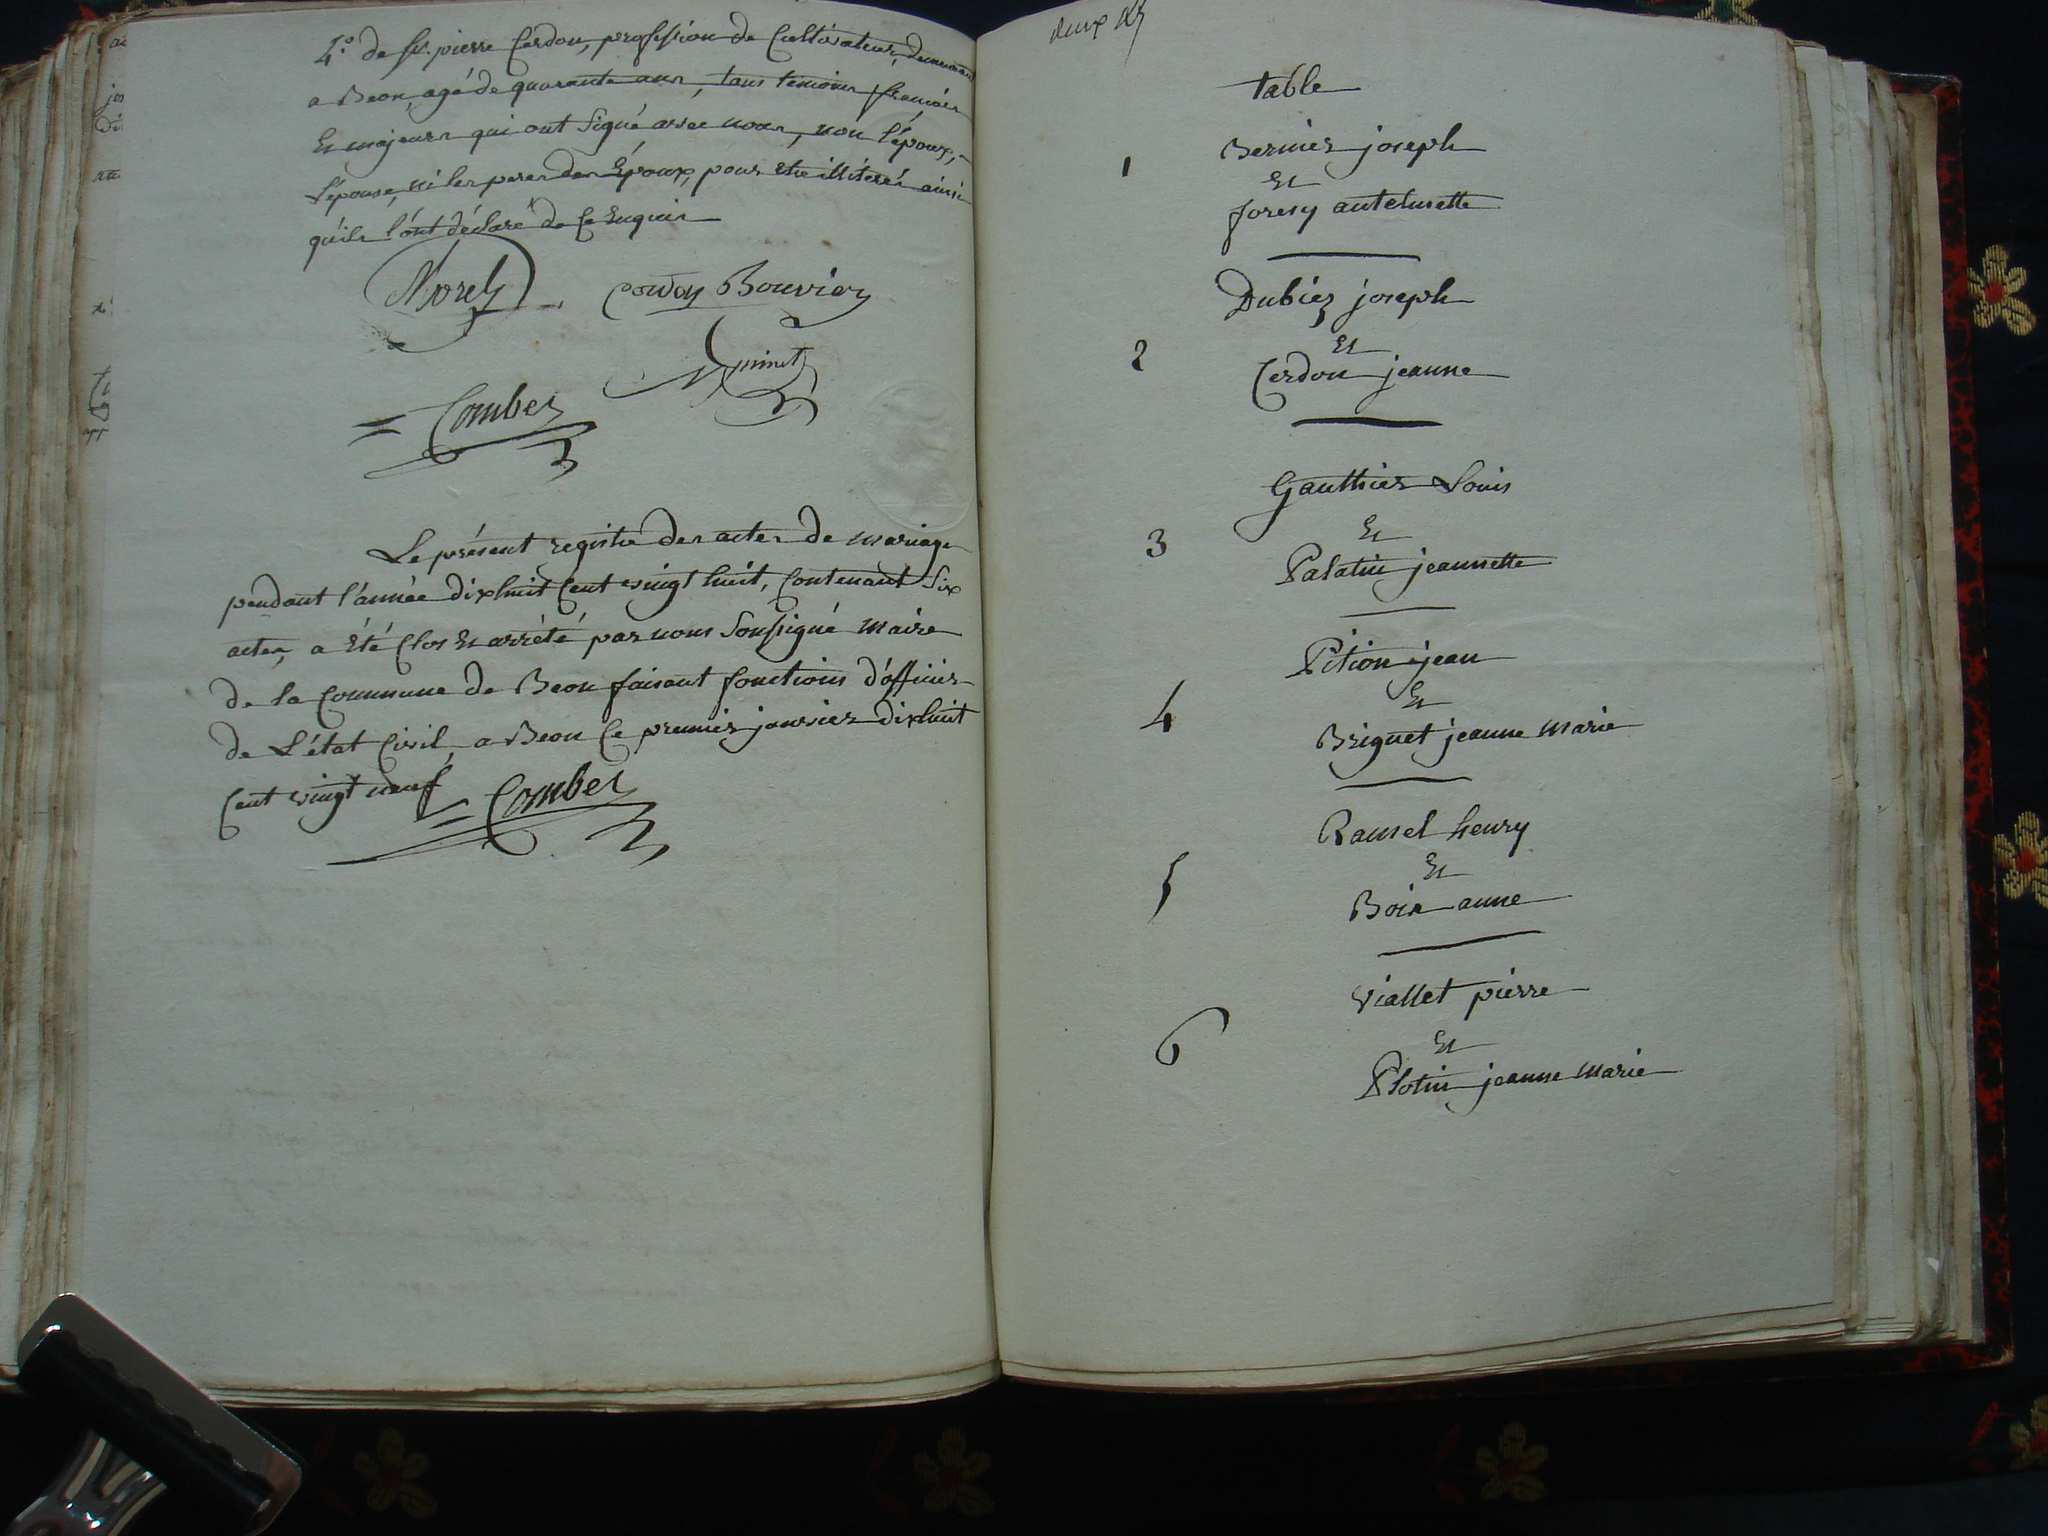 4.° de sr. pierre Cerdon, profession de Cultivateur, demeurant
a Beon, agé de quarante ans, tous temoins francais
Et majeurs qui ont signé avec nous, non l'époux,
l'épouse, ni les peres des Époux, pour etre illiterés ainsi
qu'ils l'ont déclaré de Ce Enquis
Morel Cerdon Bouvier
= Combet
Le présent registre des actes de mariage
pendant l'année dixhuit Cent vingt huit, Contenant Six
actes, a Été Clos Et arrété par nous Soussigné Maire
de la Commune de Beon faisant fonctions d'officier
de L'état Civil, a Beon Ce premier janvier dixhuit
Cent vingt neuf = Combet
deux
table
1 Bernier joseph
Et
forest antelmette
2 Dubiez joseph
Et
Cerdon jeanne
3 Gauthier Louis
Et
Palatin jeannette
4 Pition jean
Et
Briguet jeanne Marie
5 Ramel henry
Et
Bois anne
6 Viallet pierre
Et
Plotin jeanne Marie